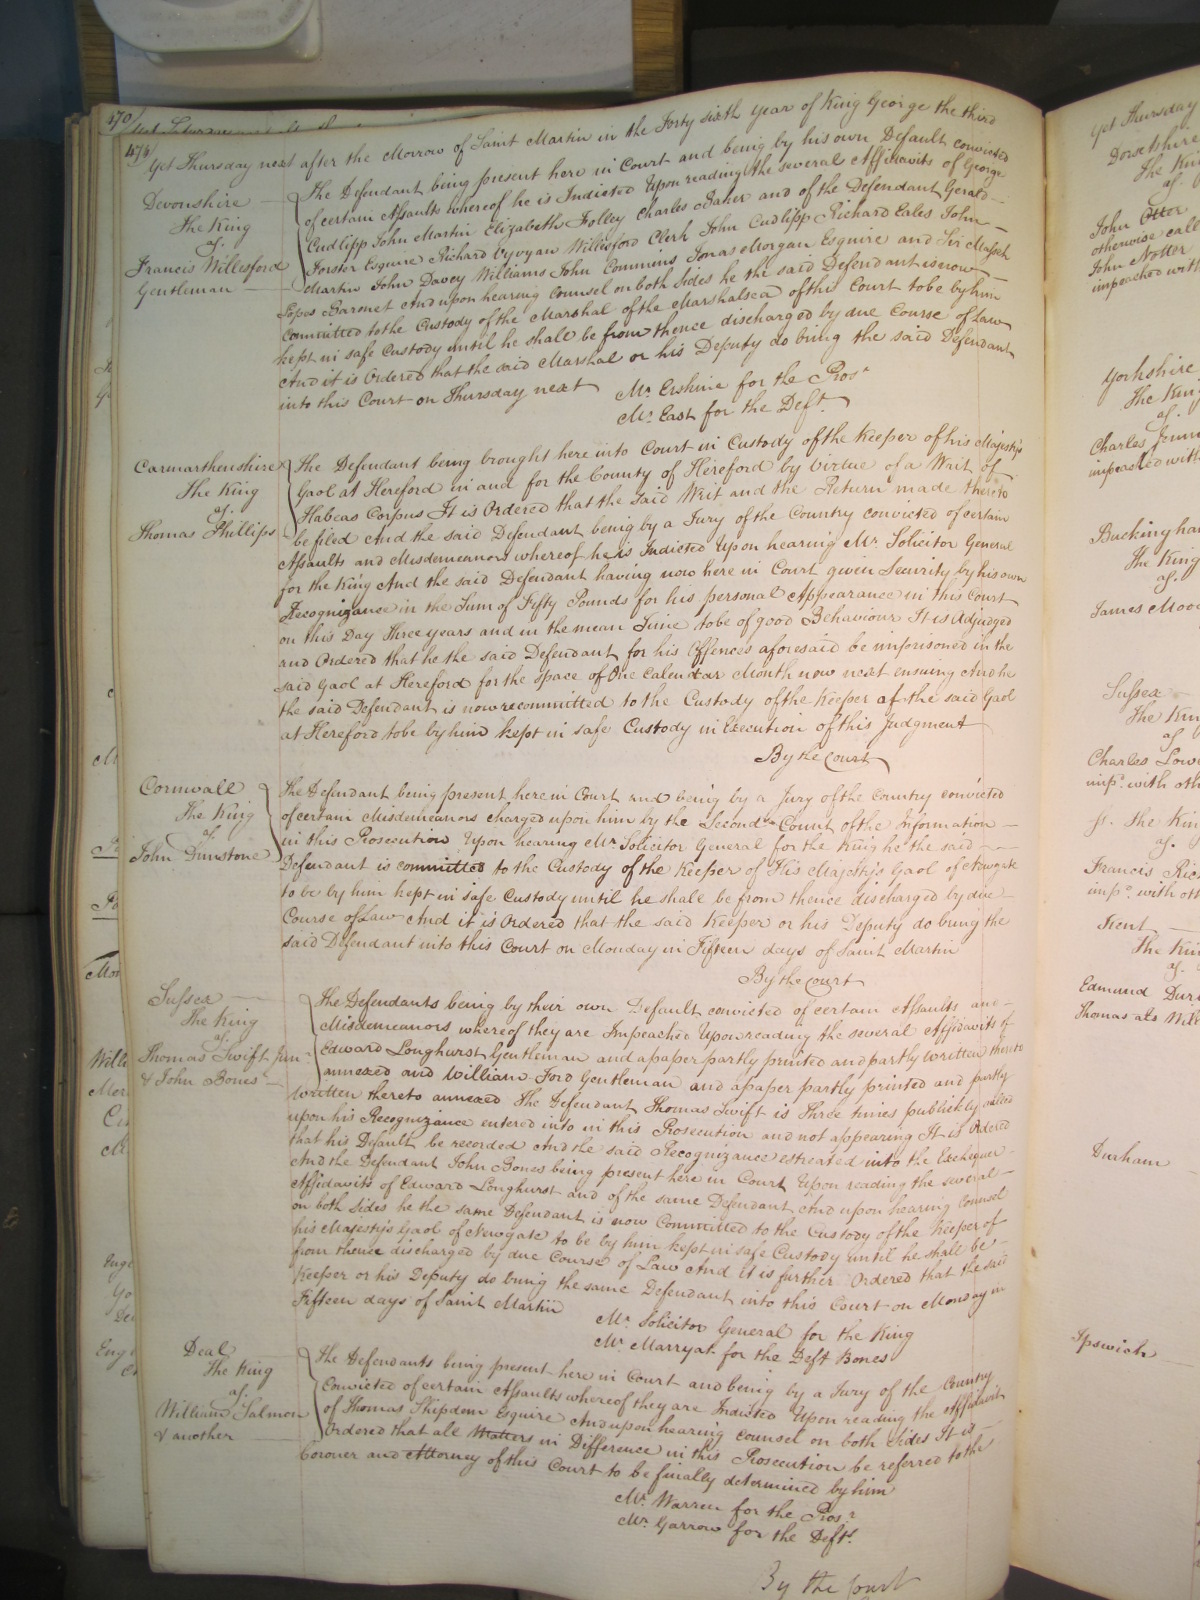 470
474
Yet Thursday next after the Morrow of Saint Martin in the Forty sixth year of King George the third
Devonshire
The King
agt.
Francis Willesford
Gentleman
The Defendant being present here in Court and being by his own Default convicted
of certain Assaults whereof he is Indicted Upon reading the several Affidavits of George
Cudlipp John Martin Elizabeth Folley Charles Baker and of the Defendant Gerald
Forster Esquire Richard Vyvyan Willesford Clerk John Cudlipp Richard Eales John
Martin John Davey Williams John Commins Jonas Morgan Esquire and Sir Masseh
Lopes Baronet And upon hearing Counsel on both sides he the said Defendant is now
Committed to the Custody of the Marshal of the Marshalsea of this Court to be by him
kept in safe Custody until he shall be from thence discharged by due Course of Law
And it is Ordered that the said Marshal or his Deputy do bring the said Defendant
into this Court on Thursday next
Mr. Erskine for the Prosr
Mr. East for the Deft.
Carmarthenshire
The King
agt.
Thomas Phillips
The Defendant being brought here into Court in Custody of the Keeper of his Majesty's
Gaol at Hereford in and for the County of Hereford by Virtue of a Writ of
Habeas Corpus It is Ordered that the said Writ and the Return made thereto
be filed And the said Defendant being by a Jury of the Country convicted of certain
Assaults and Misdemeanors whereof he is Indicted Upon hearing Mr. Solicitor General
for the King And the said Defendant having now here in Court given Security by his own
Recognizance in the Sum of Fifty Pounds for his personal Appearance in this Court
on this Day Three years and in the mean Time to be of good Behaviour It is Adjudged
and Ordered that he the said Defendant for his Offences aforesaid be imprisoned in the
said Gaol at Hereford for the space of One Calendar Month now next ensuing And he
the said Defendant is now recommitted to the Custody of the Keeper of the said Gaol
at Hereford to be by him kept in safe Custody in Execution of this Judgment
By the Court
Cornwall
The King
agt.
John Dunstone
The Defendant being present here in Court and being by a Jury of the Country convicted
of certain Misdemeanors charged upon him by the Second Count of the Information
in this Prosecution Upon hearing Mr. Solicitor General for the King he the said
Defendant is committed to the Custody of the Keeper of His Majesty's Gaol of Newgate
to be by him kept in safe Custody until he shall be from thence discharged by due
Course of Law And it is Ordered that the said Keeper or his Deputy do bring the
said Defendant into this Court on Monday in Fifteen days of Saint Martin
By the Court
Sussex
The King
agt.
Thomas Swift Junr
& John Bones
The Defendants being by their own Default convicted of certain Assaults and
Misdemeanors whereof they are Impeached Upon reading the several Affidavits of
Edward Longhurst Gentleman and a paper partly printed and partly written thereto
annexed and William Ford Gentleman and a paper partly printed and partly
written thereto annexed The Defendant Thomas Swift is Three times publickly called
upon his Recognizance entered into in this Prosecution and not appearing It is Ordered
that his Default be recorded And the said Recognizance estreated into the Exchequer
And the Defendant John Bones being present here in Court Upon reading the several
Affidavits of Edward Longhurst and of the same Defendant And upon hearing Counsel
on both sides he the same Defendant is now Committed to the Custody of the Keeper of
his Majesty's Gaol of Newgate to be by him kept in safe Custody until he shall be
from thence discharged by due Course of Law And it is further Ordered that the said
Keeper or his Deputy do bring the same Defendant into this Court on Monday in
Fifteen days of Saint Martin
Mr. Solicitor General for the King
Mr. Marryat for the Deft Bones
Deal
The King
agt.
William Salmon
& another
The Defendants being present here in Court and being by a Jury of the Country
Convicted of certain Assaults whereof they are Indicted Upon reading the Affidavit
of Thomas Shipdem Esquire And upon hearing Counsel on both Sides It is
Ordered that all Matters in Difference in this Prosecution be referred to the
Coroner and Attorney of this Court to be finally determined by him
Mr. Warren for the Prosr
Mr. Garrow for the Defts.
By the Court
Yet Thursday
Dorsetshire
The King
agt.
John Otter
otherwise call
John Notter
impeached with
Yorkshire
The King
agt.
Charles
impeached with
Buckingham
The King
agt.
James Mood
Sussex
The King
agt.
Charles Lowe
imp. with oth
The King
agt.
Francis Rich
imp. with oth
Kent
The King
agt.
Edmund Dur
Thomas als Will
Durham
Ipswich